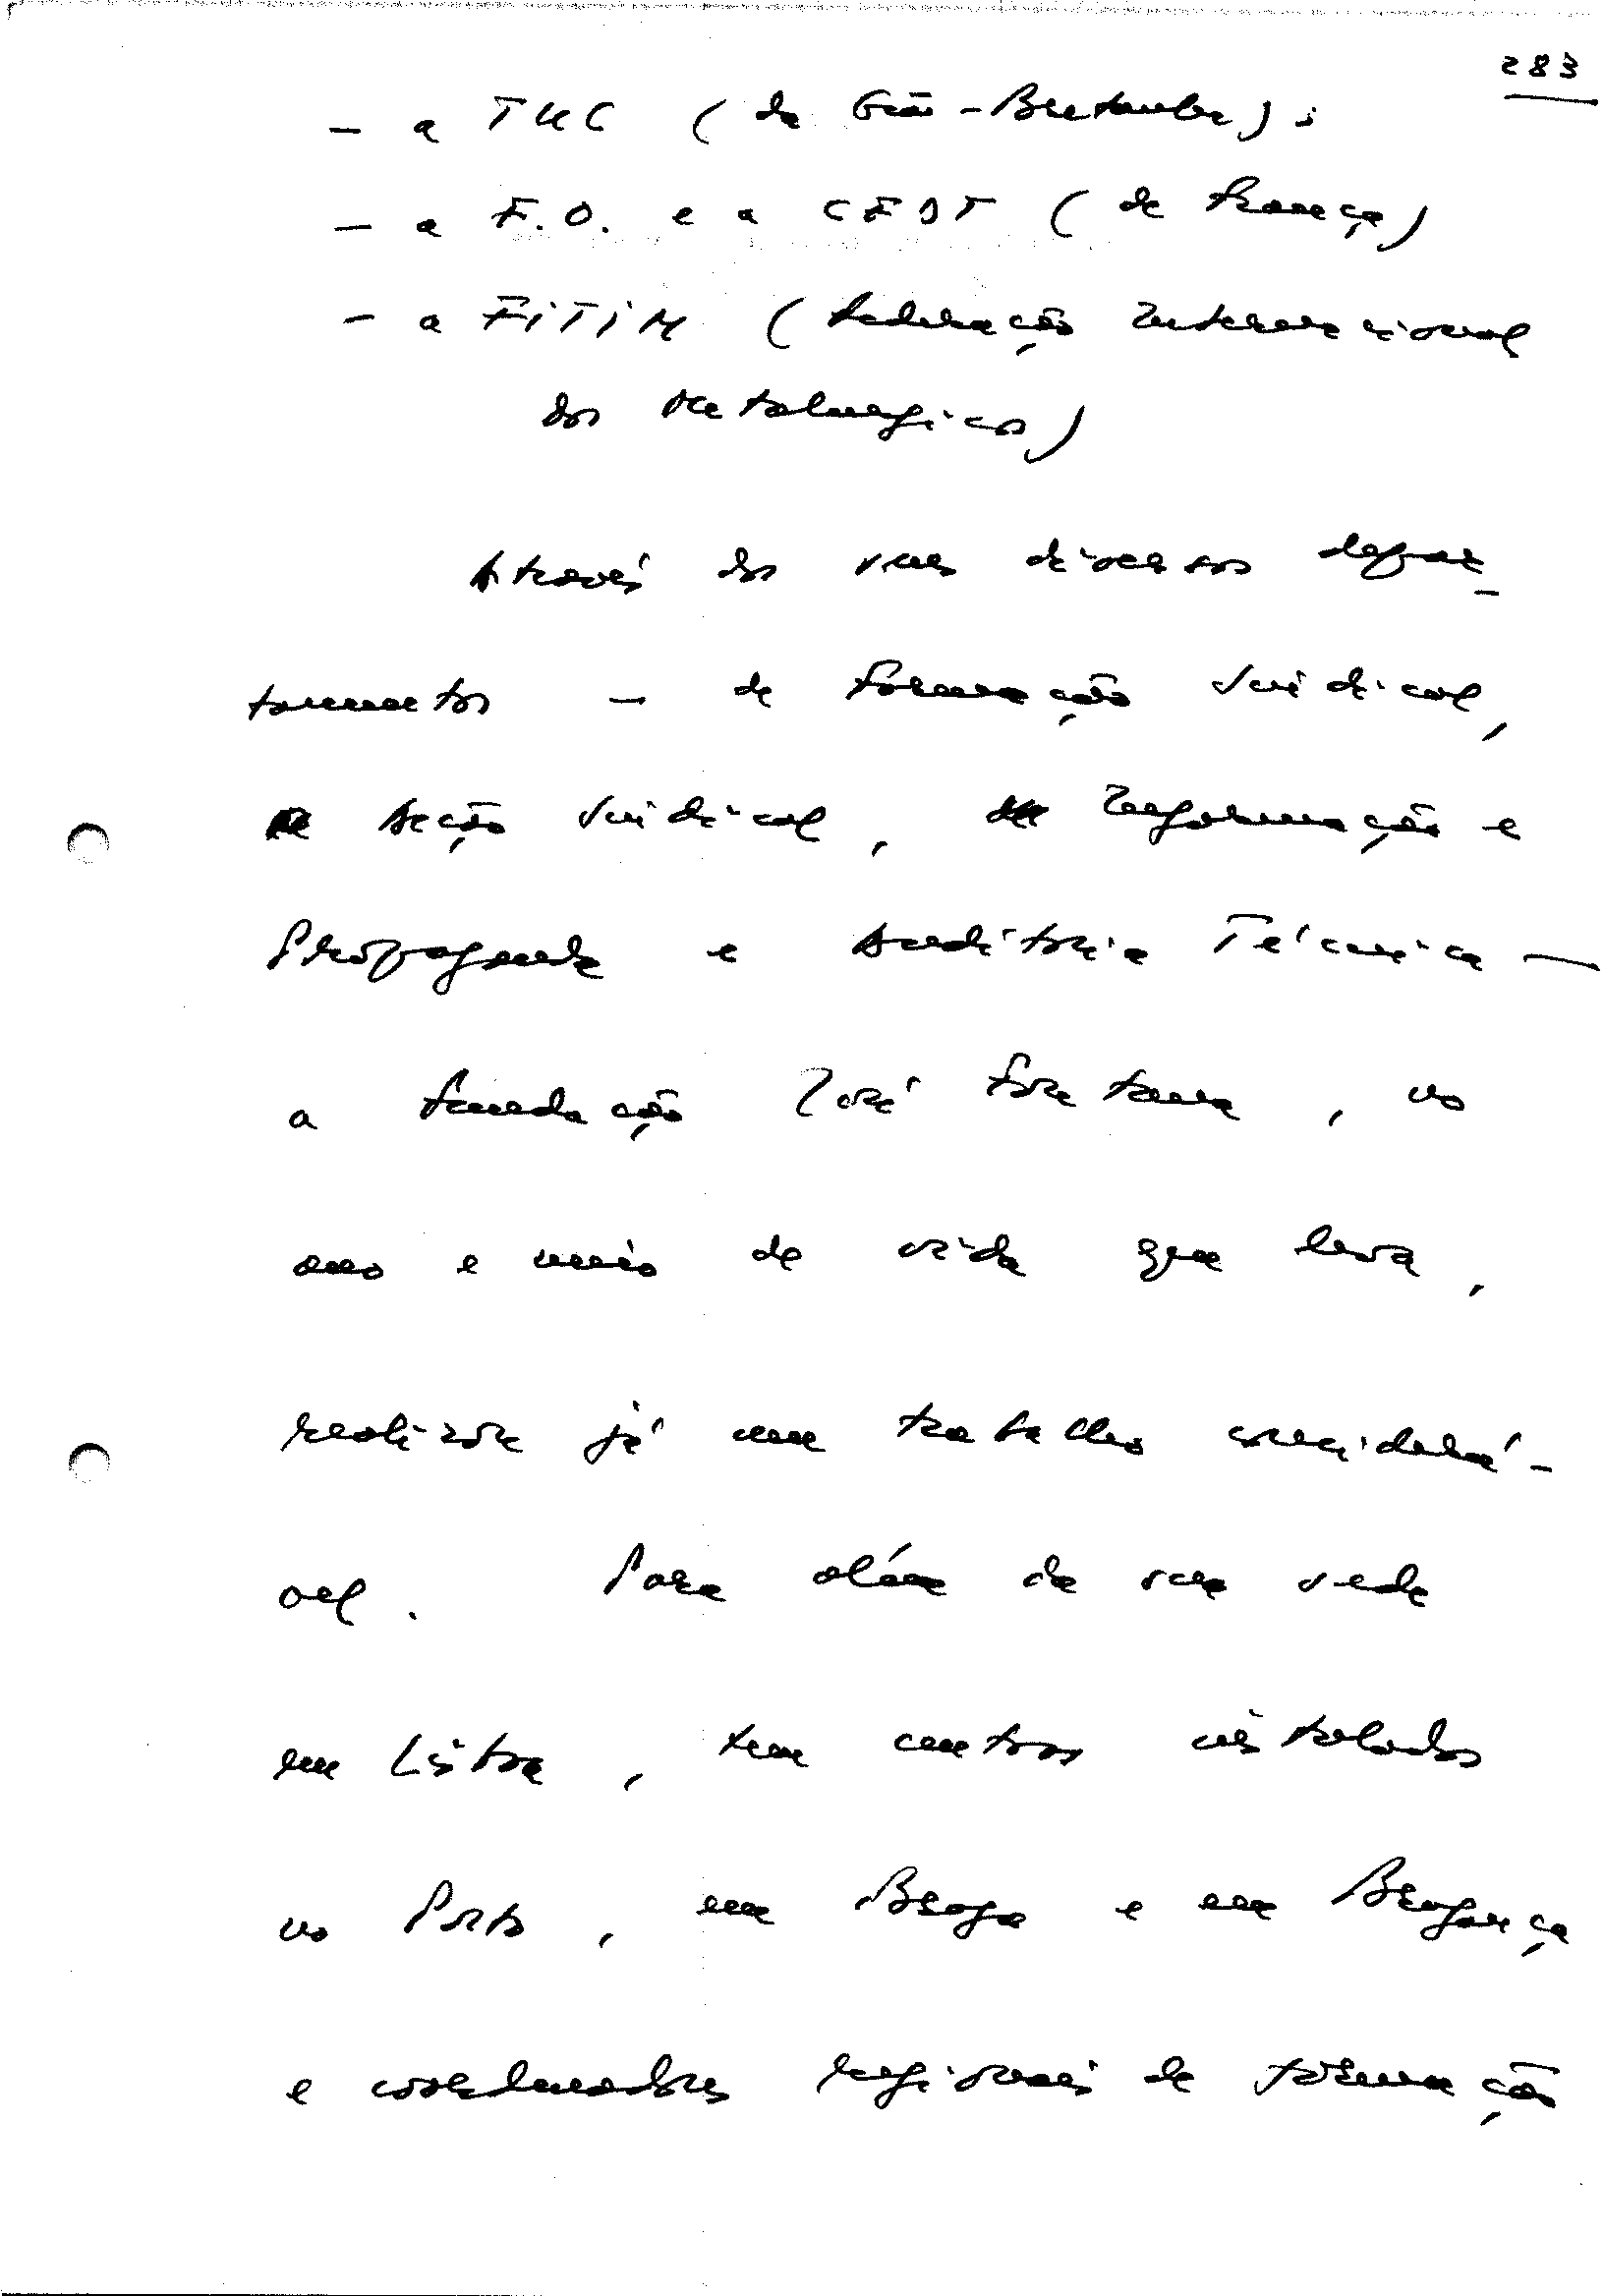 283
- a TUC (da Grã-Bretanha);
- a F.O. e a CFDT (de França)
- a FITIM (Federação Internacional
dos Metalurgicos)
Através dos seus diversos depar-
tamentos - de Formação Sindical,
Acção Sindical, de Informação e
Propaganda e Auditoria Técnica —
a Fundação José Fontana, no
ano e meio de vida que leva,
realizou já um trabalho considerá-
vel. Para além da sua sede
em Lisboa, tem centros instalados
no Porto, em Braga e em Bragança
e coordenadores regionais de formação